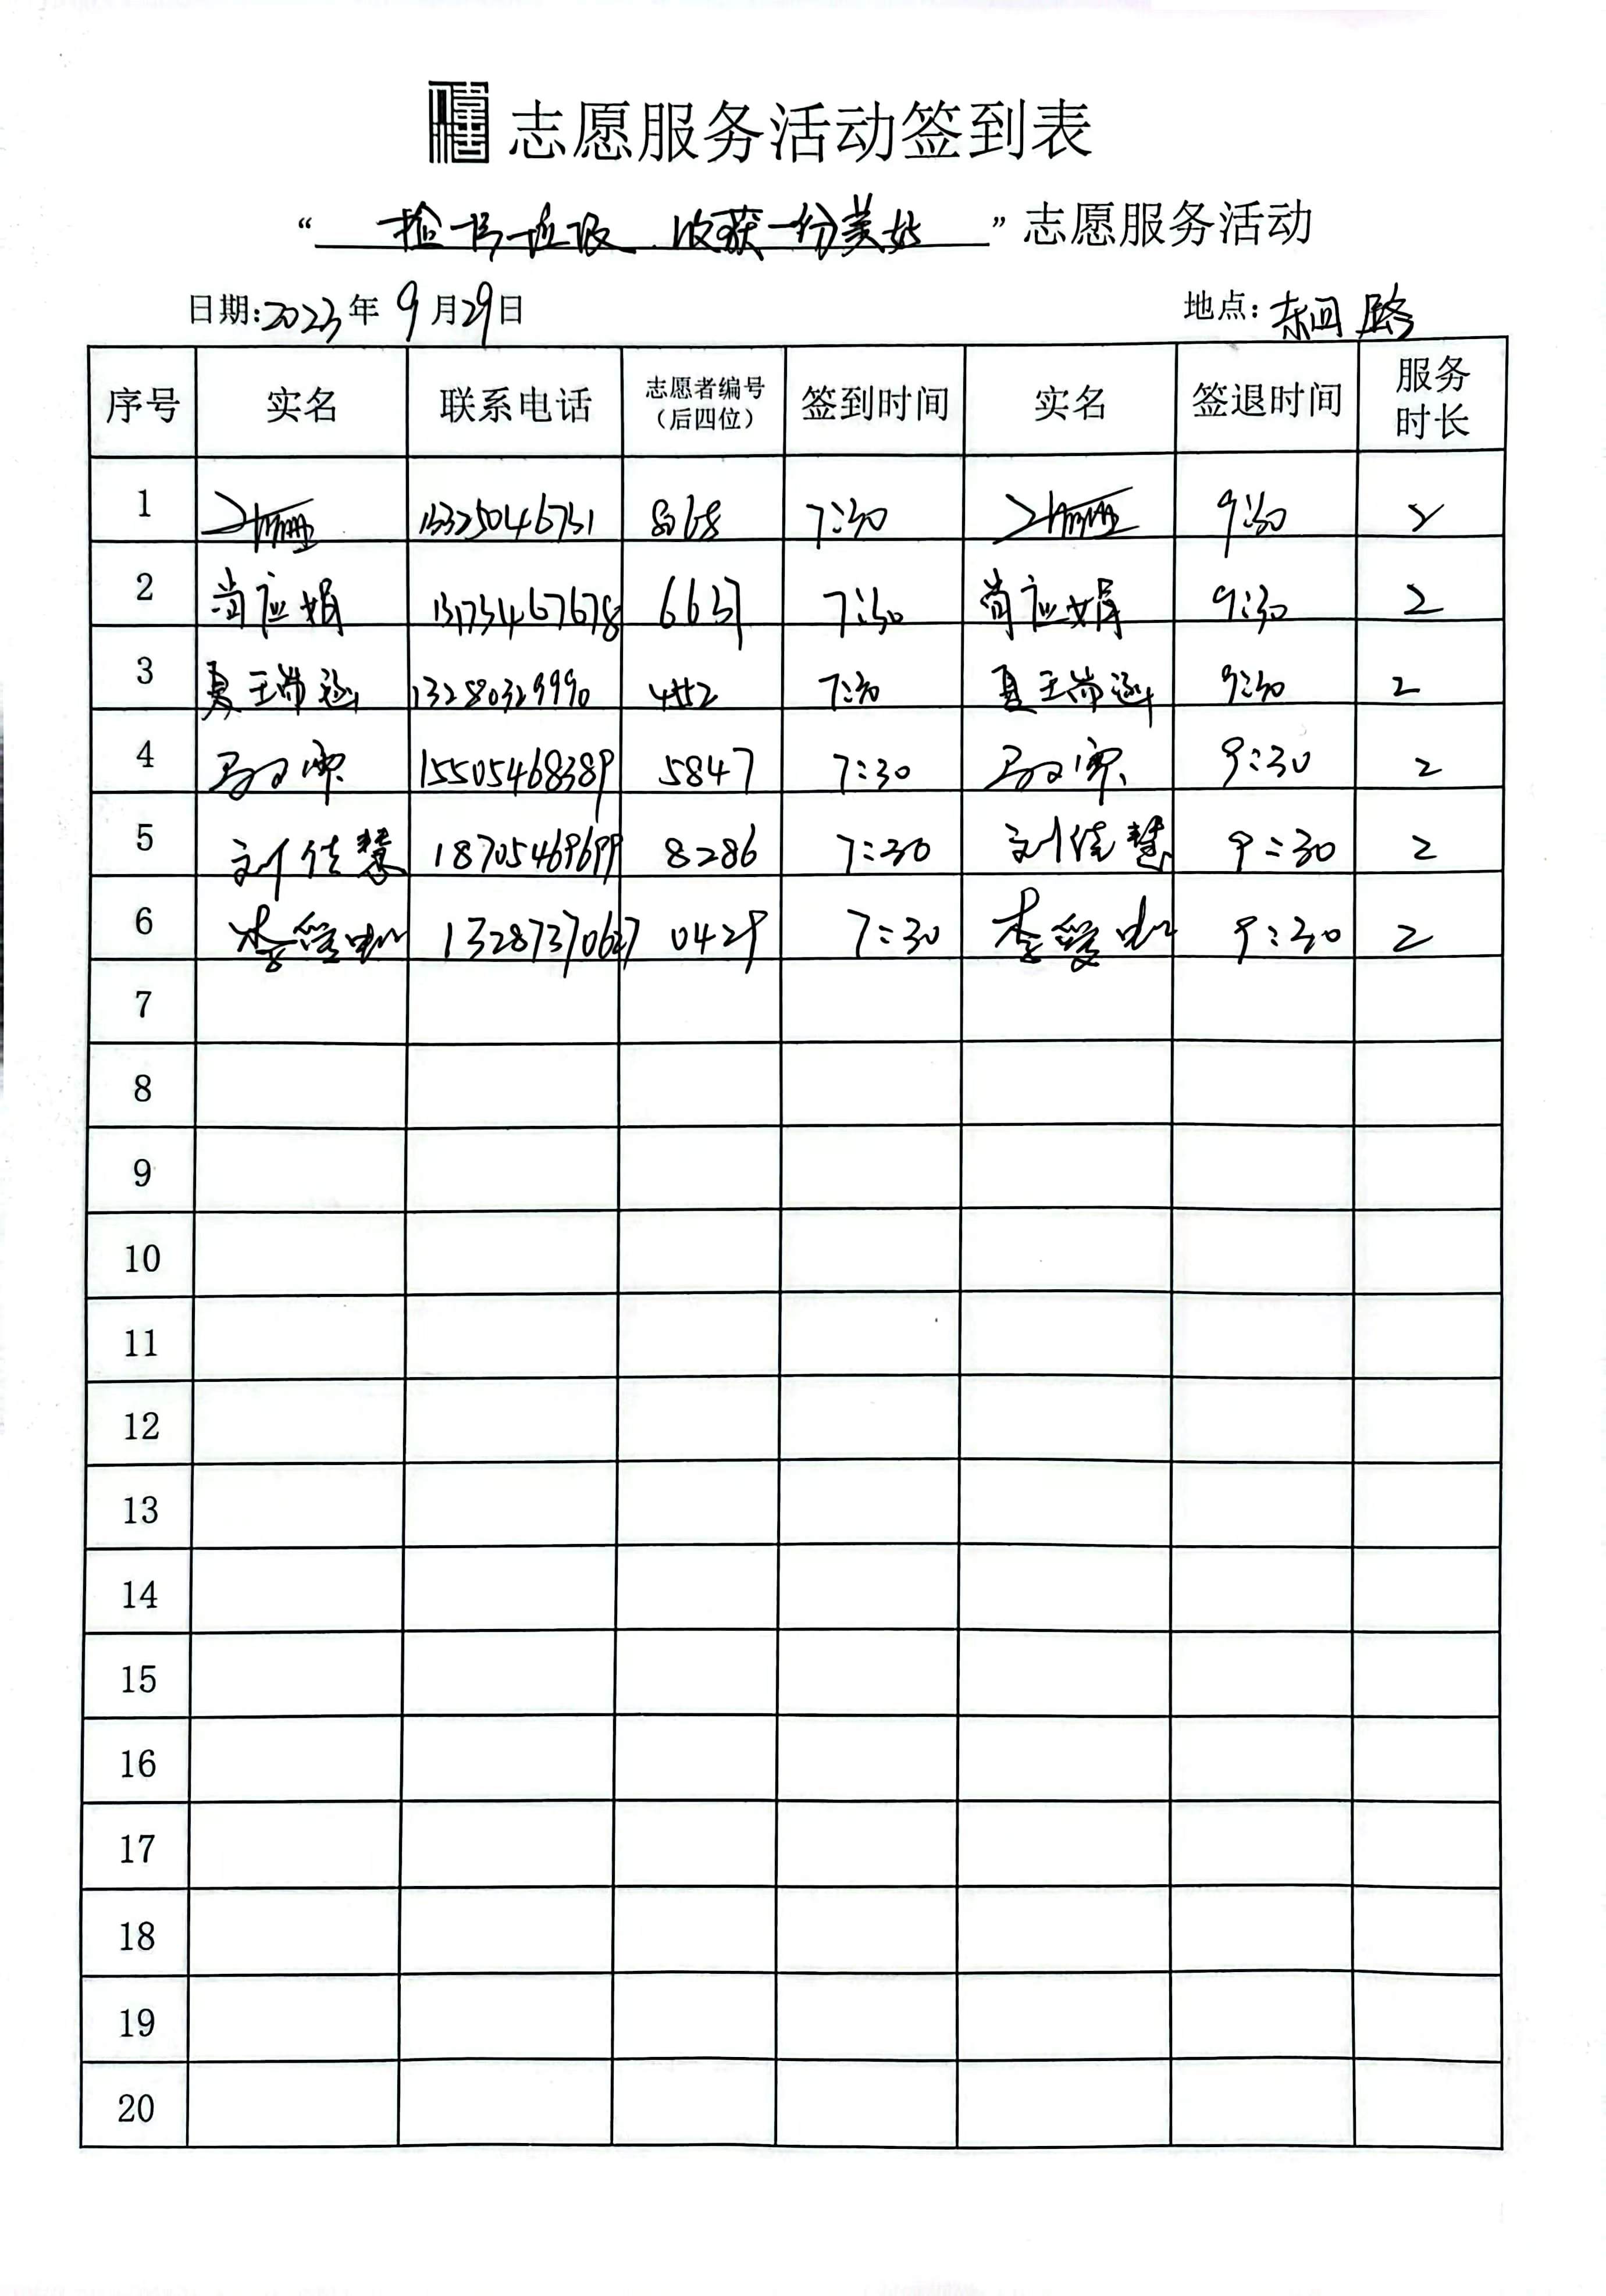 志愿服务活动签到表
“捡一片垃圾 收获一份美好”志愿服务活动
日期:2023年9月29日 地点:
序号 实名 联系电话 志愿者编号(后四位) 签到时间 实名 签退时间 服务时长
1 15325046731 8068 7:30 9:30 2
2 尚应娟 13173467678 6637 7:30 尚应娟 9:30 2
3 夏王常逊 13280329990 7:30 夏王常逊 9:30 2
4 15505468389 5847 7:30 9:30 2
5 刘佳慧 18705469699 8286 7:30 刘佳慧 9:30 2
6 李爱 13287370627 0429 7:30 李爱 9:30 2
7
8
9
10
11
12
13
14
15
16
17
18
19
20